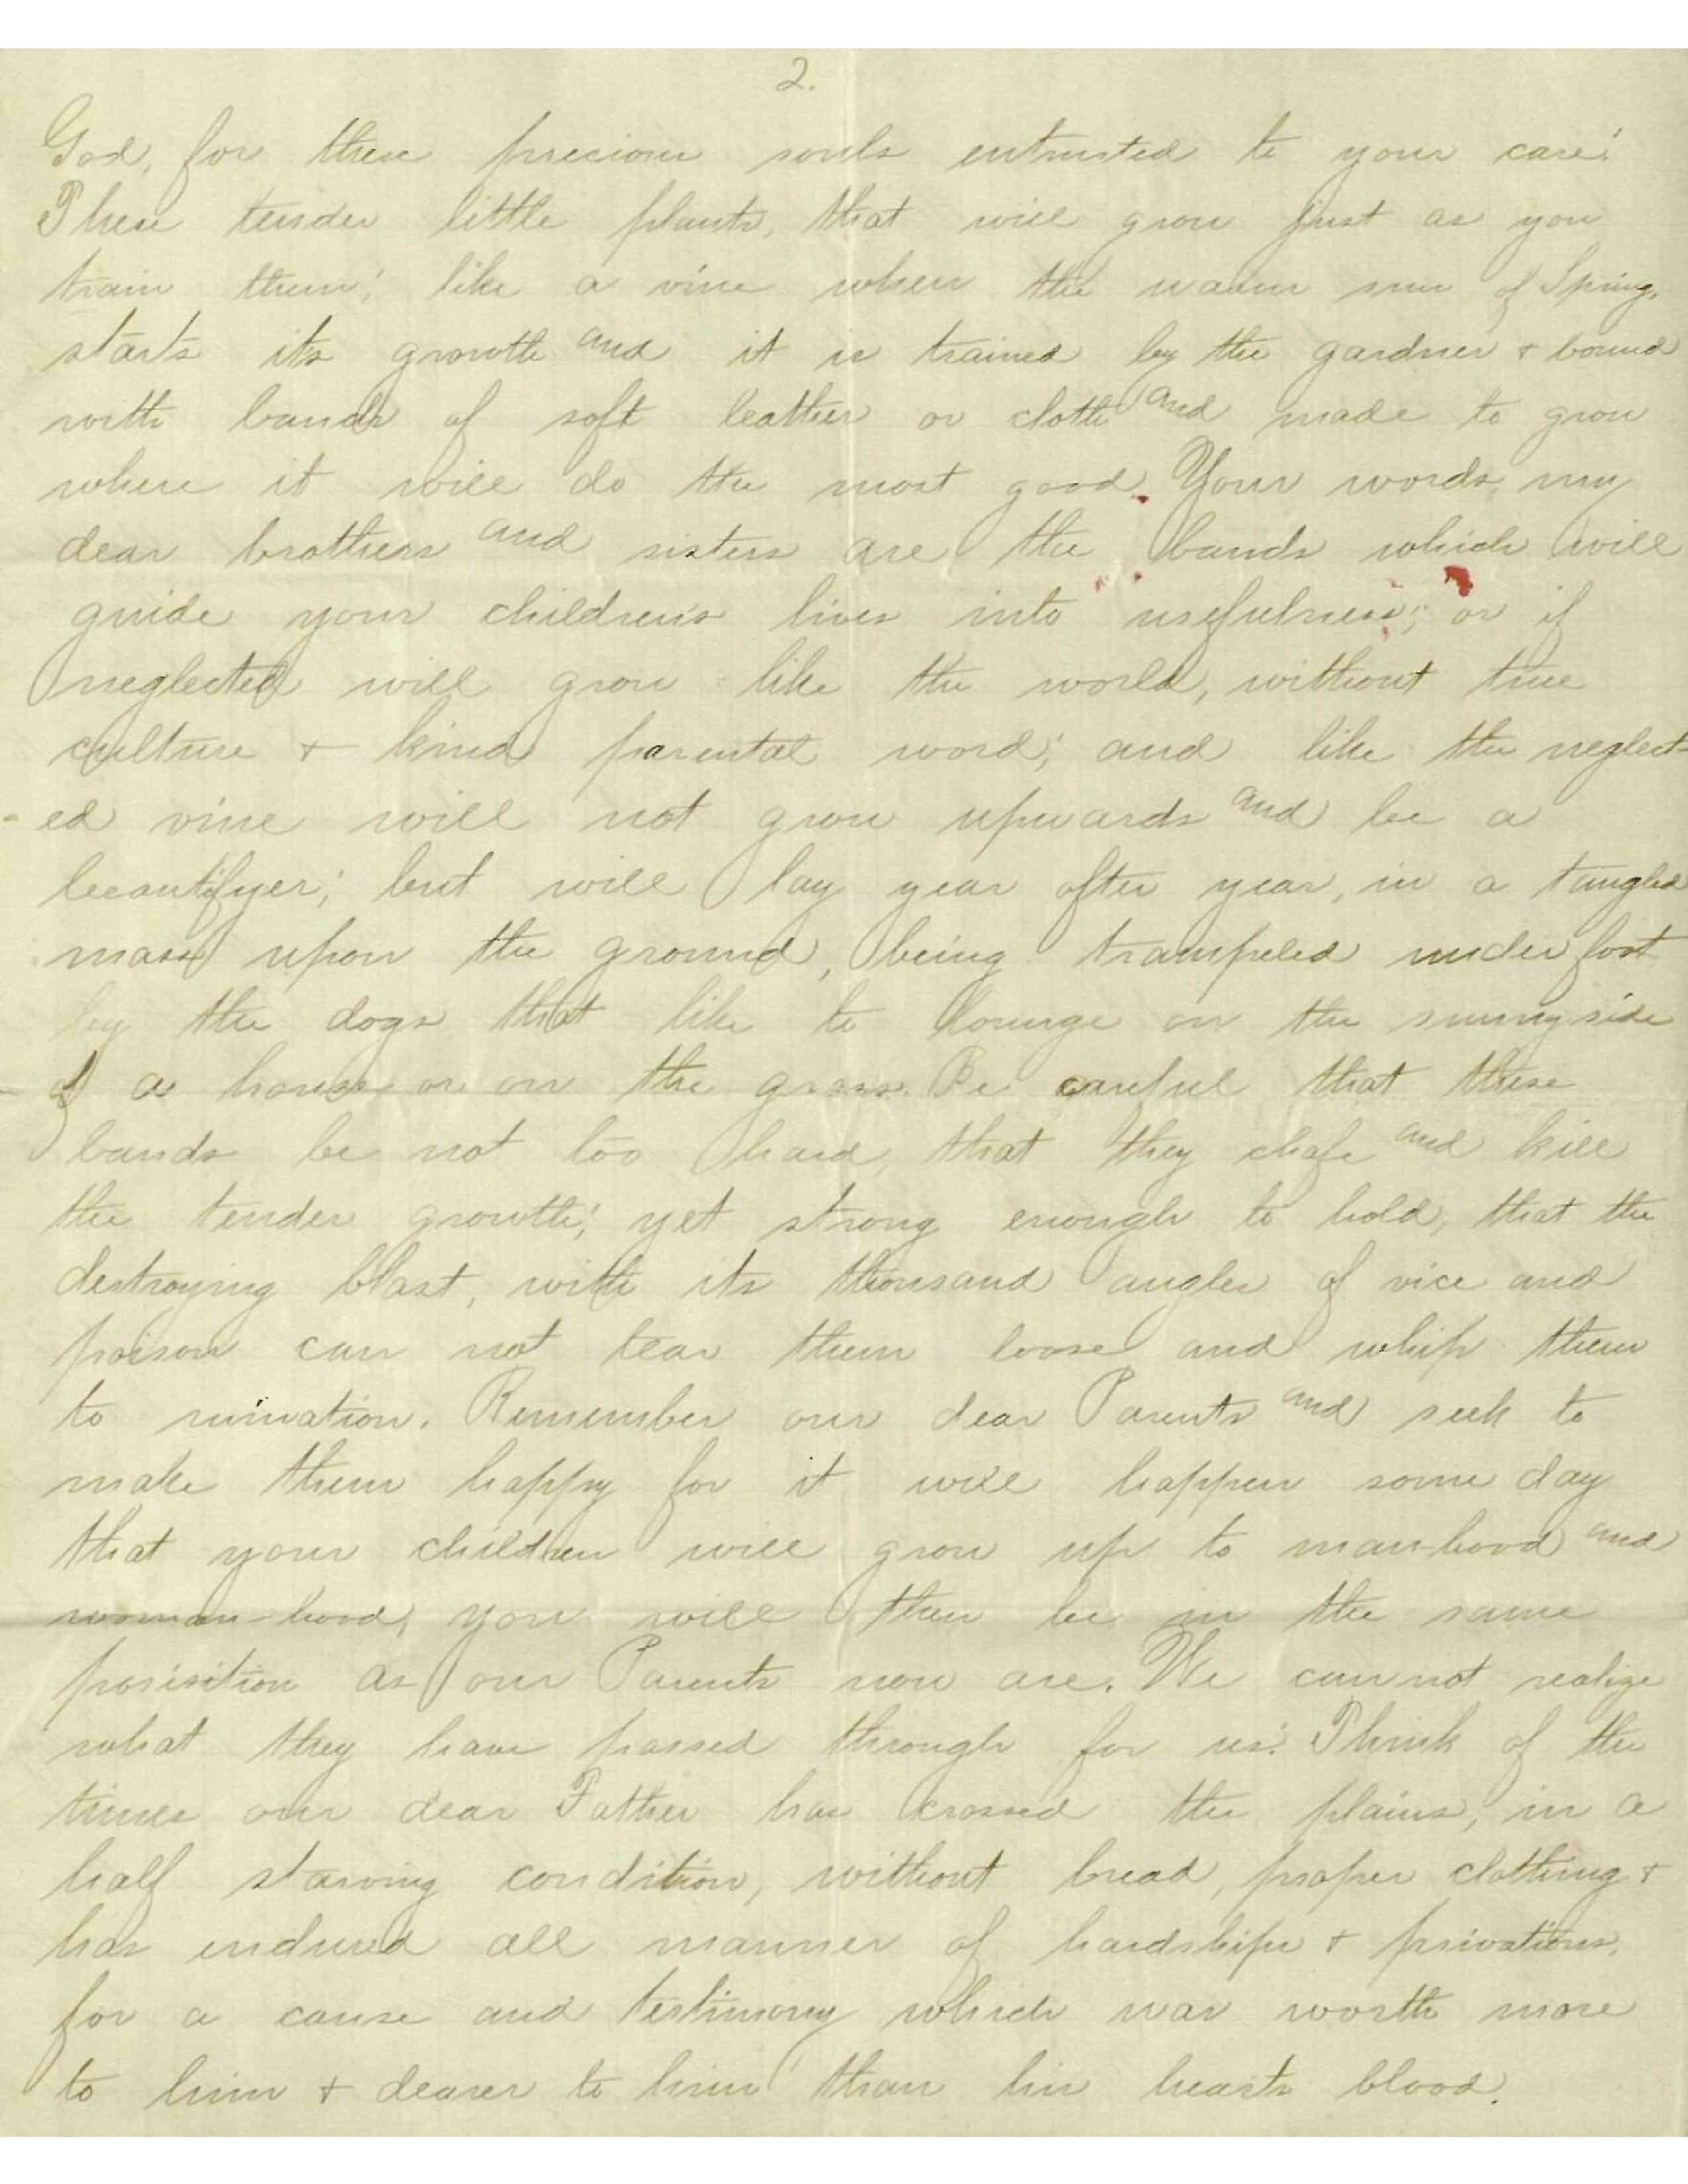 2.
God, for these precious souls entrusted to your care!
These tender little plants, that will grow just as you
train them; like a vine when the warm sun of Spring,
starts its growth and it is trained by the gardner & bound
with bands of soft leather or cloth and made to grow
where it will do the most good. Your words, my
dear brothers and sisters are the bands which will
guide your children's lives into usefulness; or if
neglected will grow like the world, without true
culture & kind parental word; and like the neglect-
-ed vine will not grow upwards and be a
beautifyer; but will lay year after year, in a tangled
mass upon the ground, being trampeled under foot
by the dogs that like to lounge on the sunny side
of a house or on the grass. Be careful that these
bands be not too hard, that they chafe and kill
the tender growth; yet strong enough to hold, that the
destroying blast, with its thousand angles of vice and
poison can not tear them loose and whip them
to ruination. Remember our dear Parents and seek to
make them happy for it will happen some day
that your children will grow up to man-hood and
woman-hood, you will then be in the same
posisition as our Parents now are. We cannot realize
what they have passed through for us. Think of the
times our dear Father has crossed the plains, in a
half starving condition, without bread, proper clothing &
has endured all manner of hardships & privations,
for a cause and testimony which was worth more
to him & dearer to him than his hearts blood.